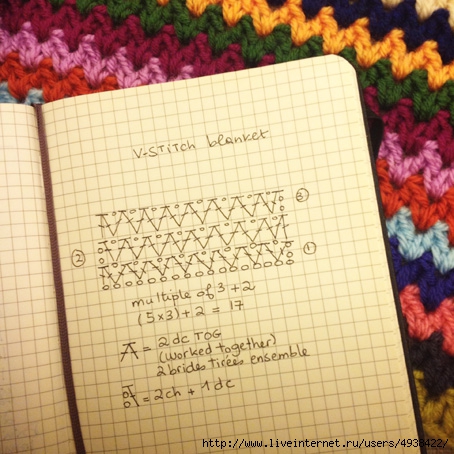 V-STITCH blanket
③
②
①
multiple of 3 + 2
(5x3) + 2 = 17
= 2 dc TOG
(worked together)
2 brides tirées ensemble
= 2ch + 1dc
http://www.liveinternet.ru/users/4938422/